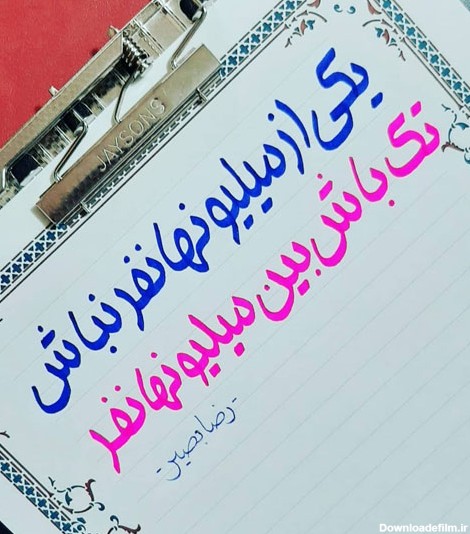 JAYSONS
یکی از میلیونها نفر نباش
تک باش بین میلیونها نفر
-رضا بصیر-
Downloadefilm.ir